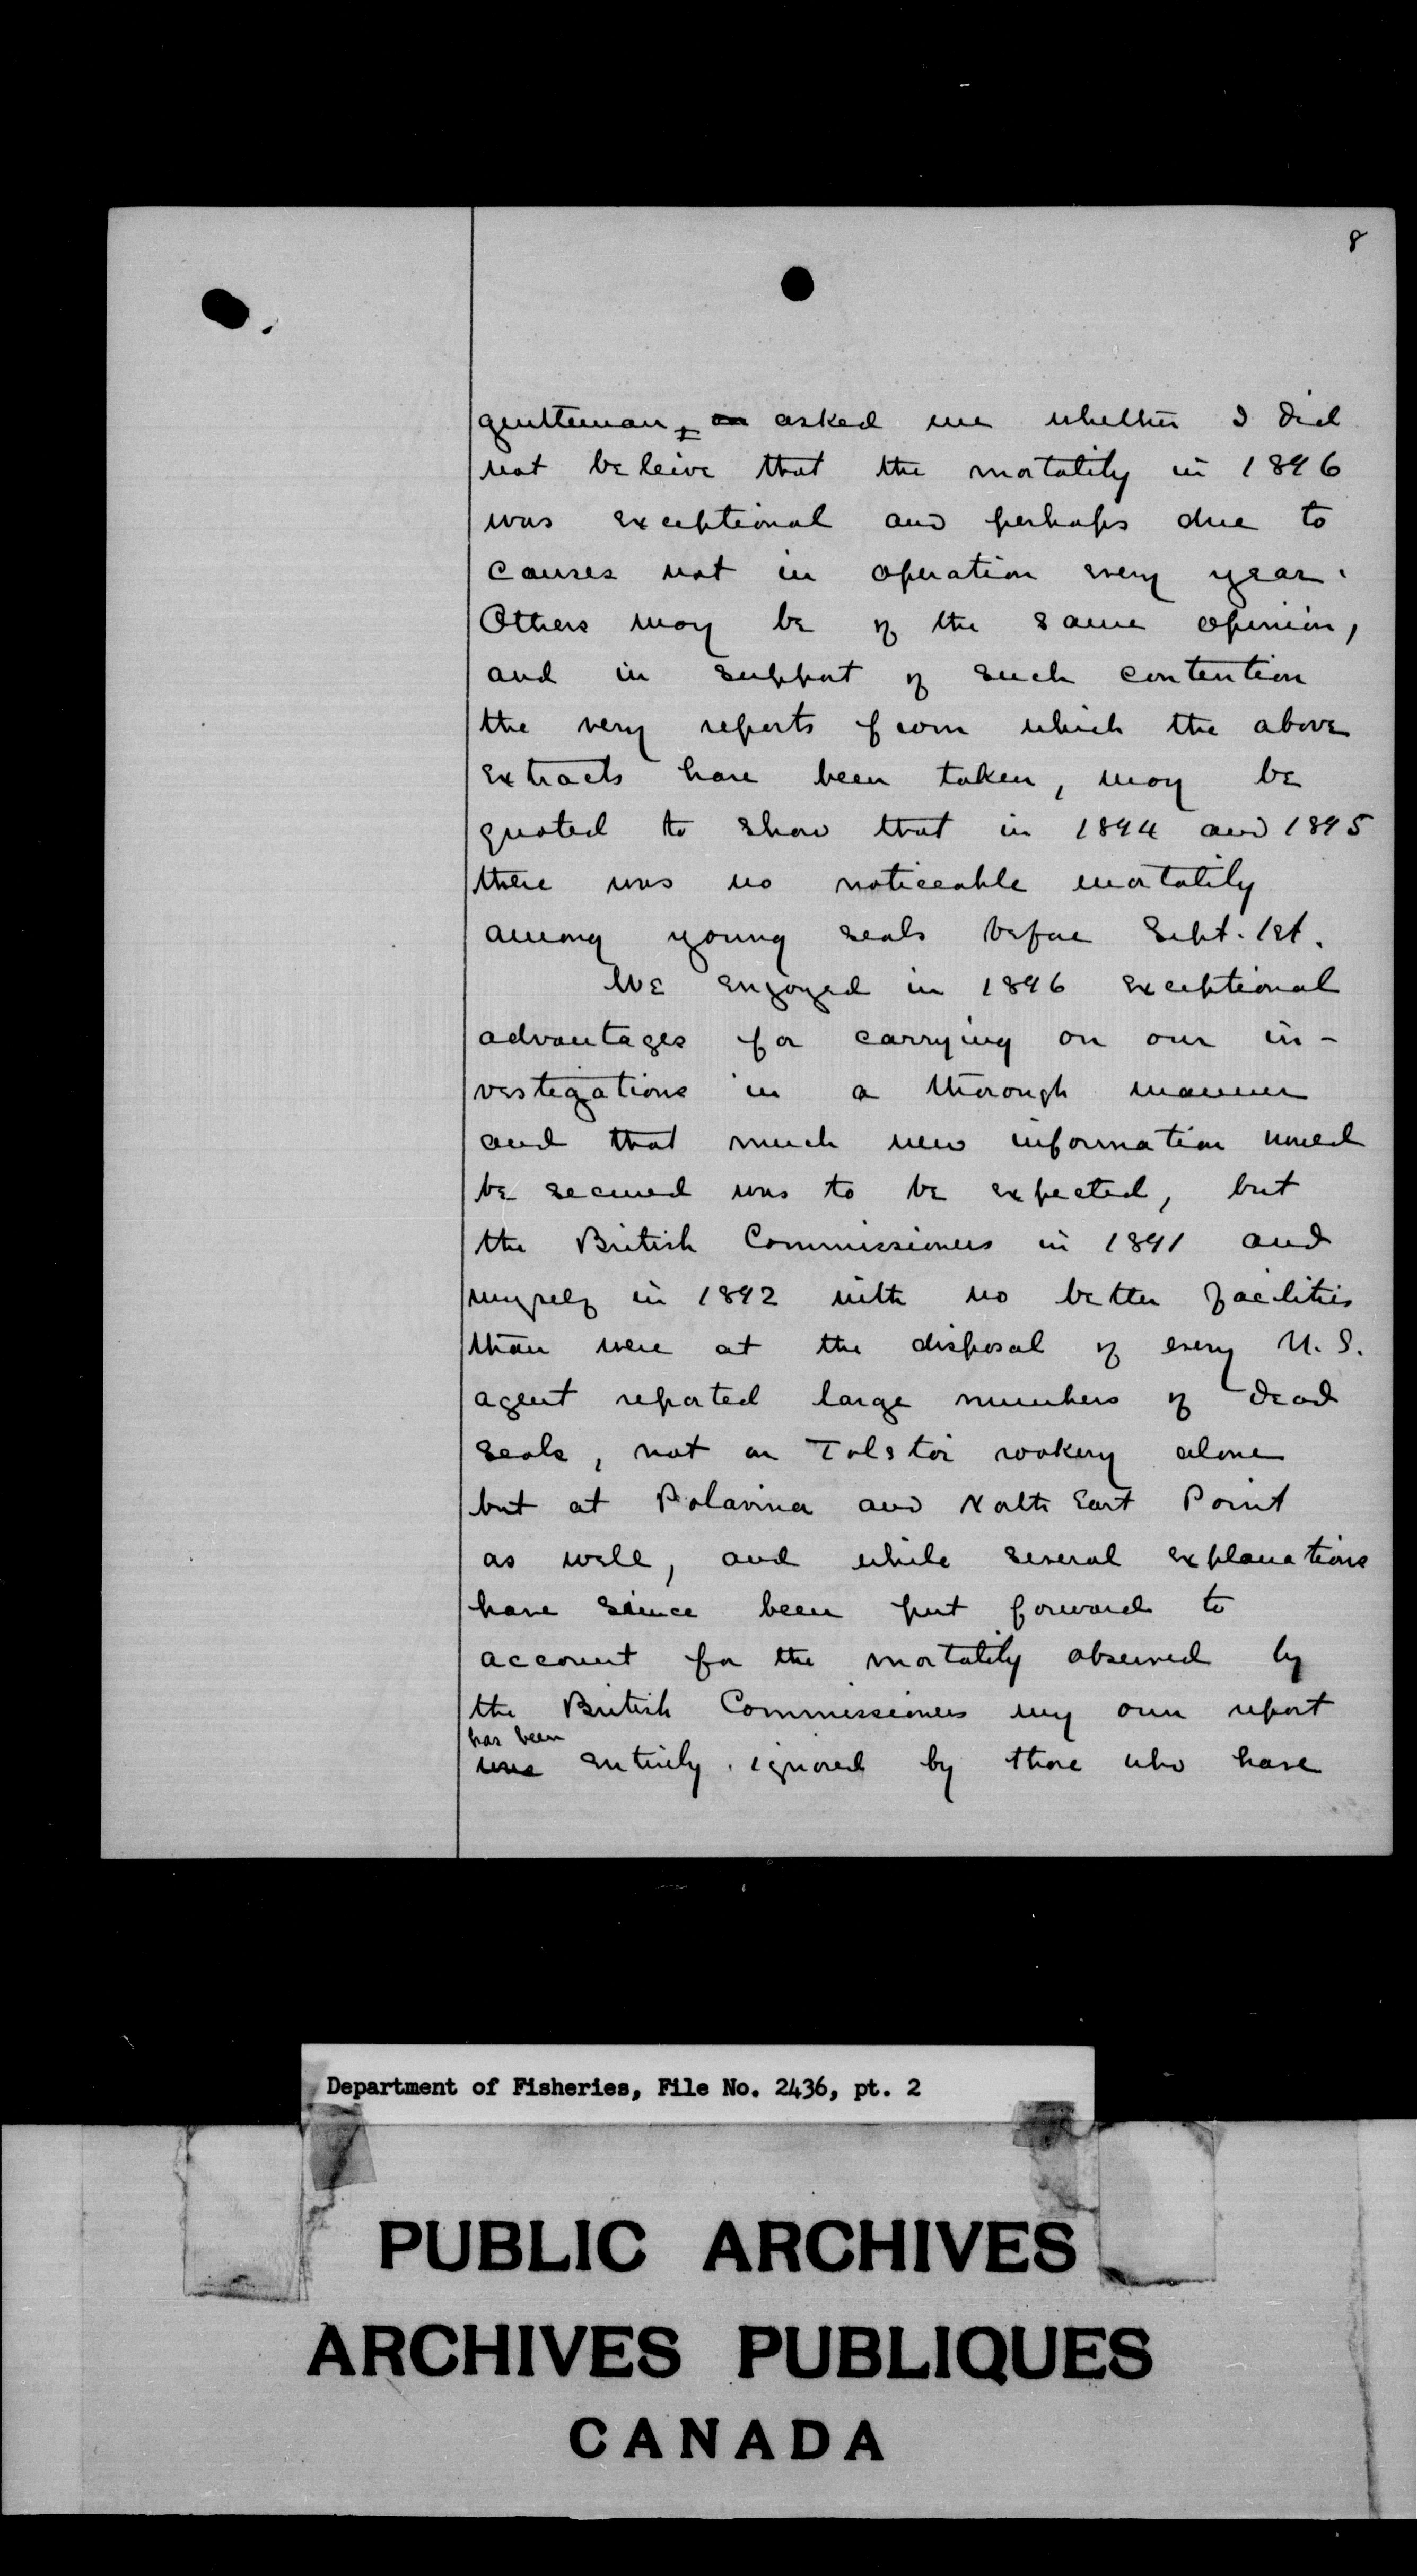 8
gentleman, asked me whether I did
not beleive that the mortality in 1896
was exceptional and perhaps due to
causes not in operation every year.
Others may be of the same opinion,
and in support of such contention
the very reports from which the above
extracts have been taken, may be
quoted to show that in 1894 and 1895
there was no noticeable mortality
among young seals before Sept. 1st.
We enjoyed in 1896 exceptional
advantages for carrying on our in-
vestigations in a thorough manner
and that much new information would
be secured was to be expected, but
the British Commissioners in 1891 and
myself in 1892 with no better facilities
than were at the disposal of every U.S.
agent reported large numbers of dead
seals, not on Tolstoi rookery alone
but at Polavina and North East Point
as well, and while several explanations
have since been put forward to
account for the mortality observed by
the British Commissioners my own report
has been
was entirely ignored by those who have
Department of Fisheries, File No. 2436, pt. 2
PUBLIC ARCHIVES
ARCHIVES PUBLIQUES
CANADA